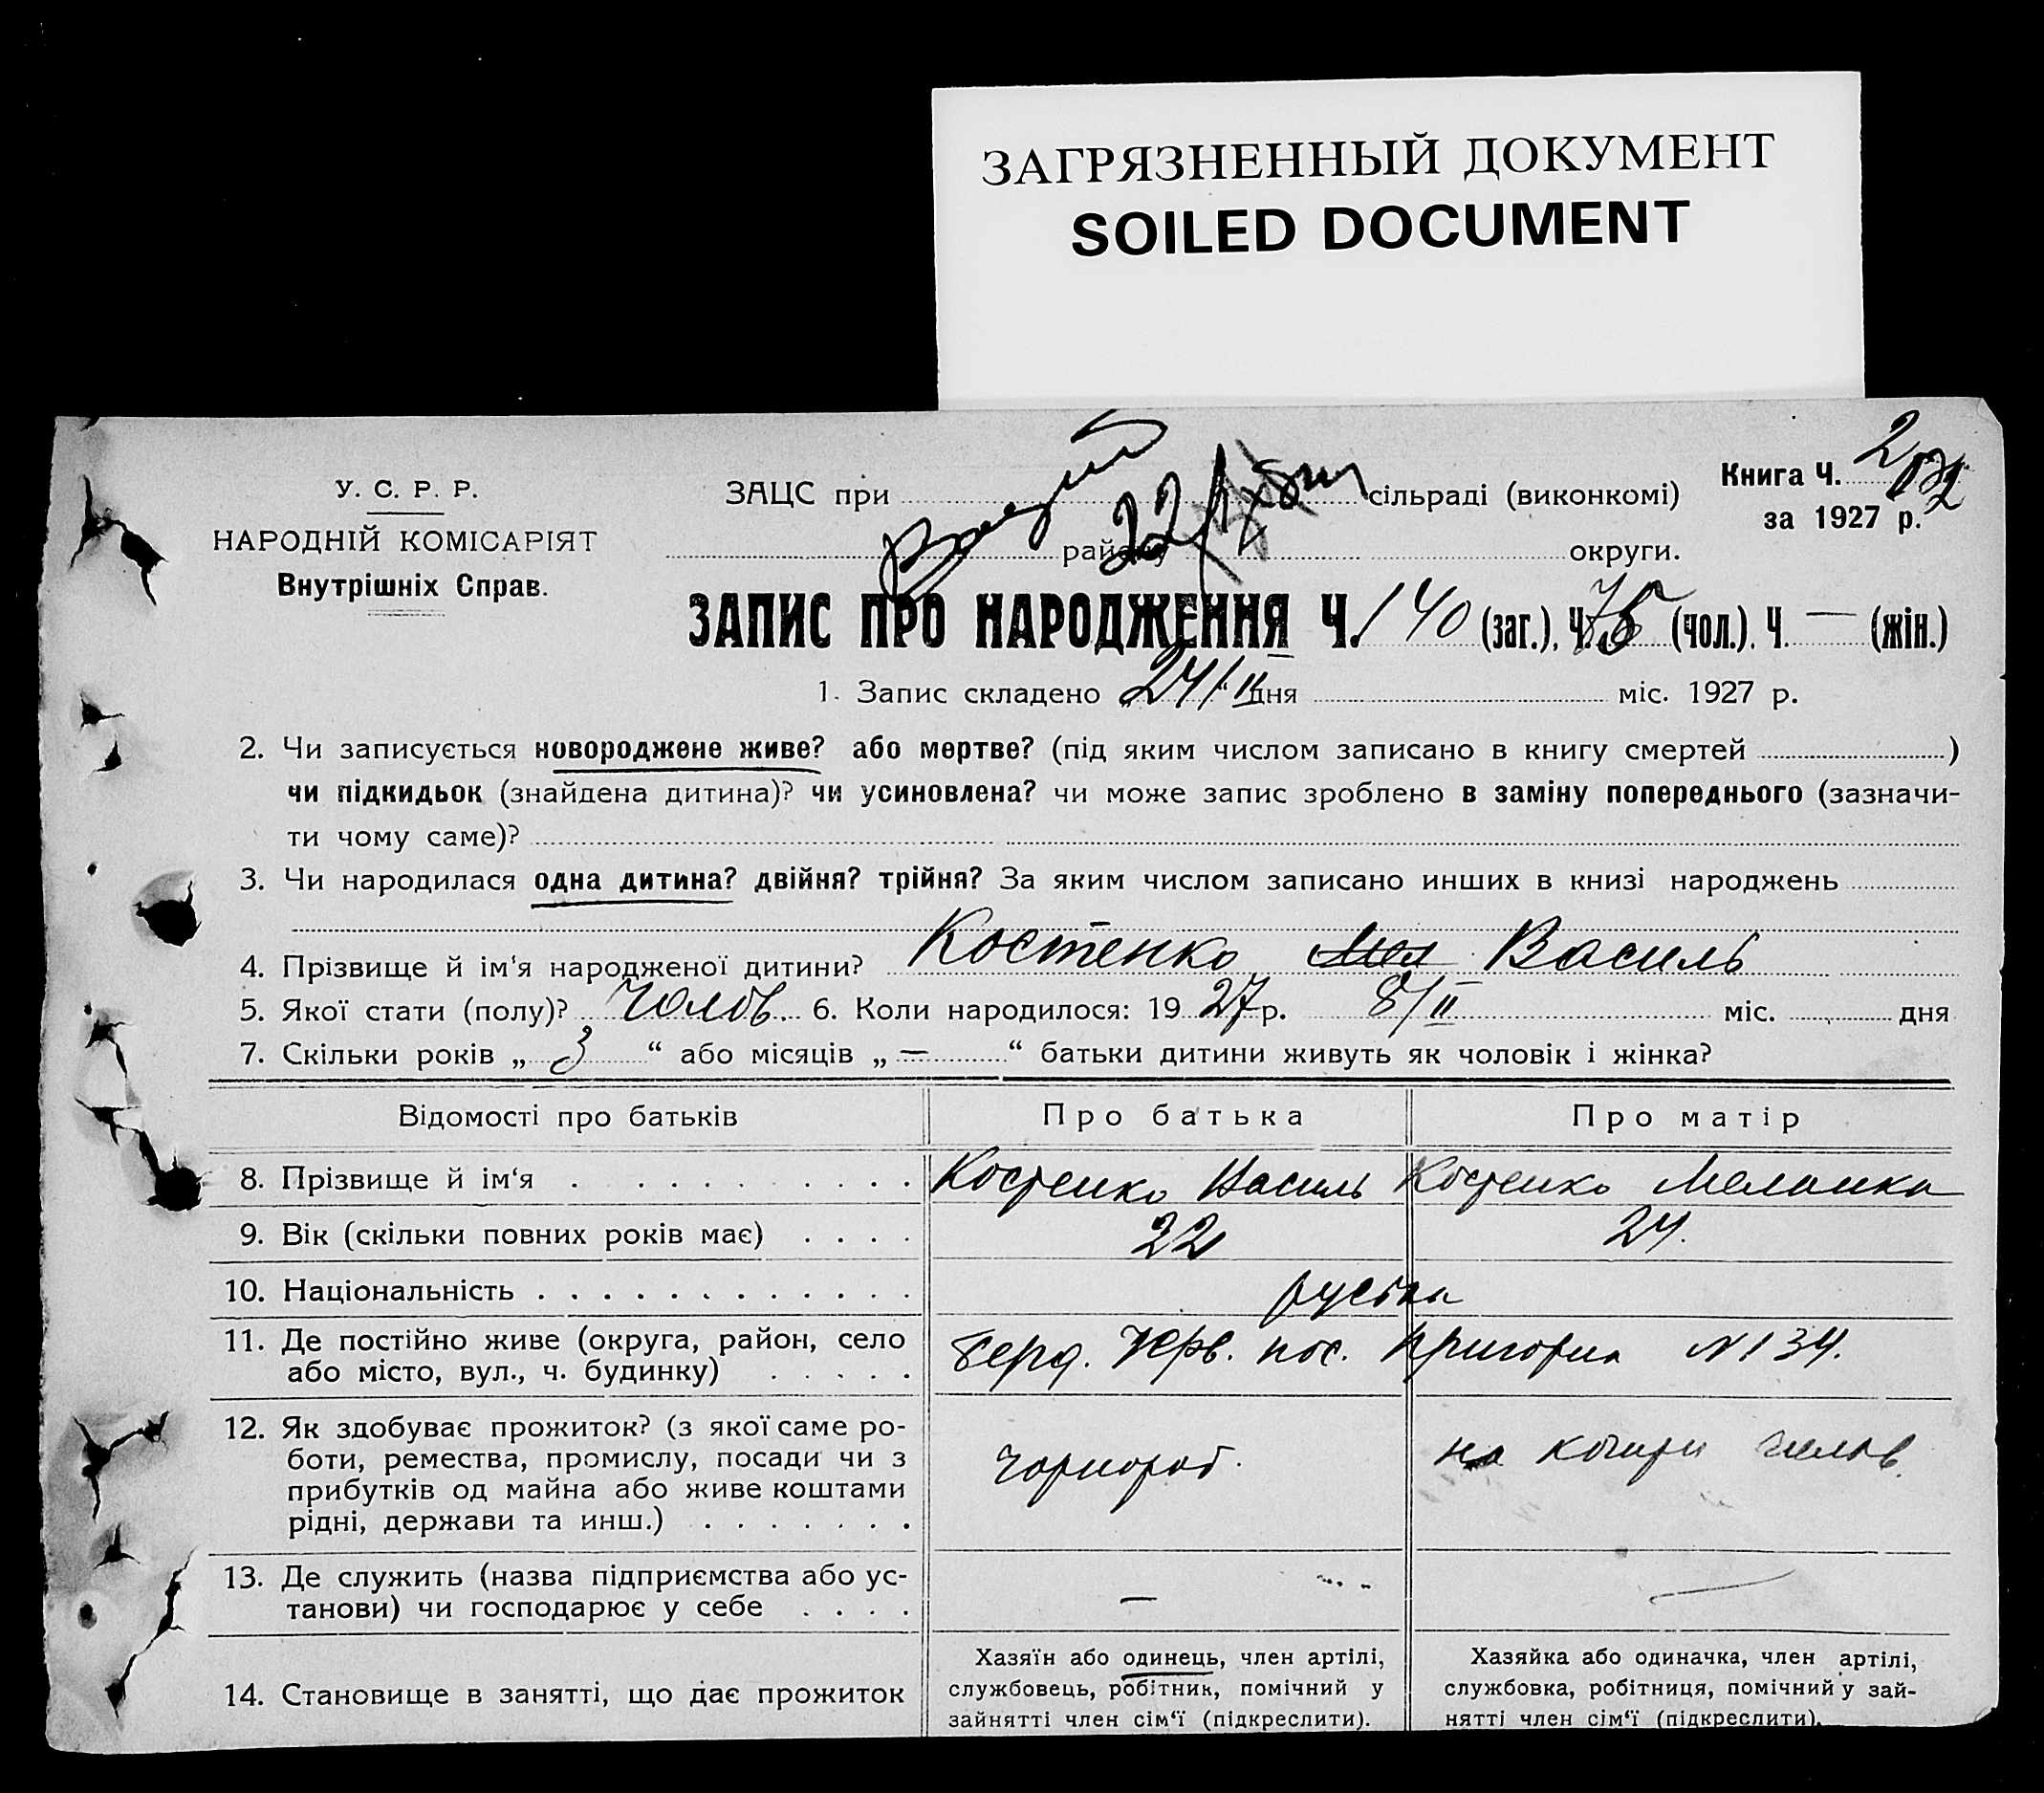 ЗАГРЯЗНЕННЫЙ ДОКУМЕНТ
SOILED DOCUMENT
У. С. Р. Р.
НАРОДНІЙ КОМІСАРІЯТ
Внутрішніх Справ.
ЗАЦС при сільраді (виконкомі)
району округи.
Книга Ч. 2
за 1927 р.
ЗАПИС ПРО НАРОДЖЕННЯ Ч. 140 (заг.), Ч. 75 (чол.). Ч. — (жін.)
1. Запис складено „24/II“ дня міс. 1927 р.
2. Чи записується новороджене живе? або мертве? (під яким числом записано в книгу смертей )
чи підкидьок (знайдена дитина)? чи усиновлена? чи може запис зроблено в заміну попереднього (зазначи-
ти чому саме)?
3. Чи народилася одна дитина? двійня? трійня? За яким числом записано инших в книзі народжень
4. Прізвище й ім'я народженої дитини? Костенко Василь
5. Якої стати (полу)? Чолов. 6. Коли народилося: 1927 р. 8/II міс. дня
7. Скільки років „ 3 “ або місяців „ — “ батьки дитини живуть як чоловік і жінка?
Відомості про батьків Про батька Про матір
8. Прізвище й ім‘я Костенко Василь Костенко Меланка
9. Вік (скільки повних років має) 22 24.
10. Національність
11. Де постійно живе (округа, район, село
або місто, вул., ч. будинку)
Берд. Черв. пос. №134.
12. Як здобуває прожиток? (з якої саме ро-
боти, ремества, промислу, посади чи з
прибутків од майна або живе коштами
рідні, держави та инш.)
Чорнороб.
на кошти чолов.
13. Де служить (назва підприємства або ус-
танови) чи господарює у себе
— —
14. Становище в занятті, що дає прожиток
Хазяїн або одинець, член артілі,
службовець, робітник, помічний у
зайнятті член сім‘ї (підкреслити).
Хазяйка або одиначка, член артілі,
службовка, робітниця, помічний у зай-
нятті член сім‘ї (підкреслити).